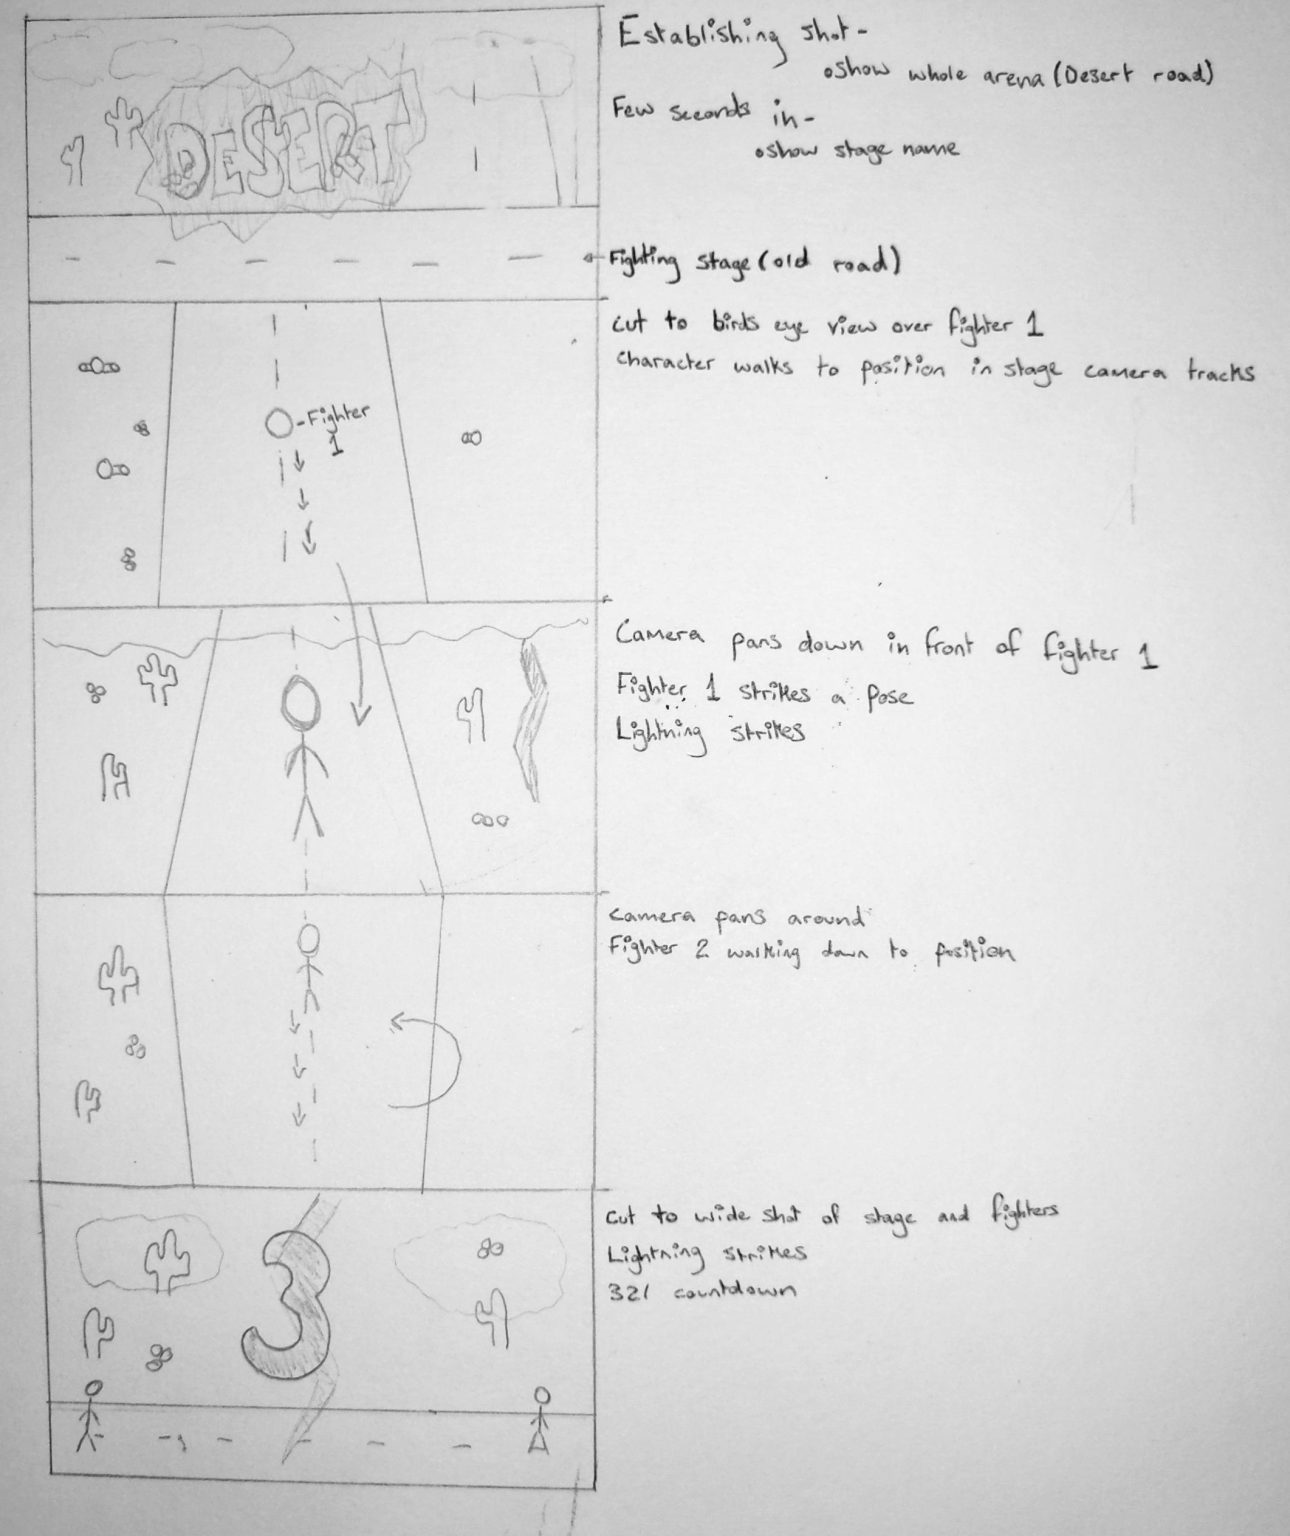 Establishing shot-
•show whole arena (Desert road)
Few seconds in-
•show stage name
DESERT
Fighting stage (old road)
cut to birds eye view over fighter 1
character walks to position in stage camera tracks
-Fighter
1
Camera pans down in front of fighter 1
Fighter 1 strikes a pose
Lightning strikes
camera pans around
Fighter 2 walking down to position
cut to wide shot of stage and fighters
Lightning strikes
321 countdown
3